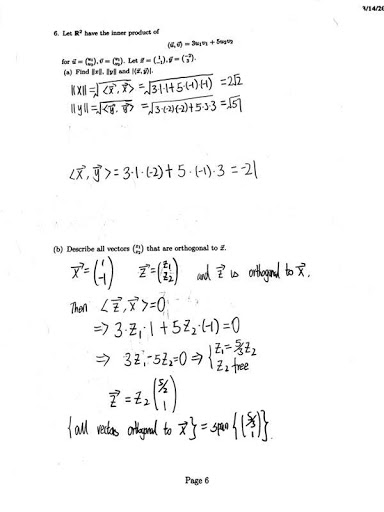 9/14/20
6. Let R² have the inner product of
⟨u⃗, v⃗⟩ = 3u₁v₁ + 5u₂v₂
for u⃗ = (u₁ u₂), v⃗ = (v₁ v₂). Let x⃗ = (1 -1), y⃗ = (-2 3).
(a) Find ||x⃗||, ||y⃗|| and |⟨x⃗, y⃗⟩|.
||x|| = √⟨x⃗, x⃗⟩ = √3·1·1+5·(-1)(-1) = 2√2
||y|| = √⟨y⃗, y⃗⟩ = √3·(-2)(-2)+5·3·3 = √57
⟨x⃗, y⃗⟩ = 3·1·(-2)+5·(-1)·3 = -21
(b) Describe all vectors (z₁ z₂) that are orthogonal to x⃗.
x⃗ = (1 -1) z⃗ = (z₁ z₂) and z⃗ is orthogonal to x⃗,
Then ⟨z⃗, x⃗⟩ = 0
⇒ 3·z₁·1 + 5z₂·(-1) = 0
⇒ 3z₁-5z₂=0 ⇒ { z₁ = 5/3 z₂
z₂ free
z⃗ = z₂ (5/3 1)
{all vectors orthogonal to x⃗} = span{(5/3 1)}.
Page 6